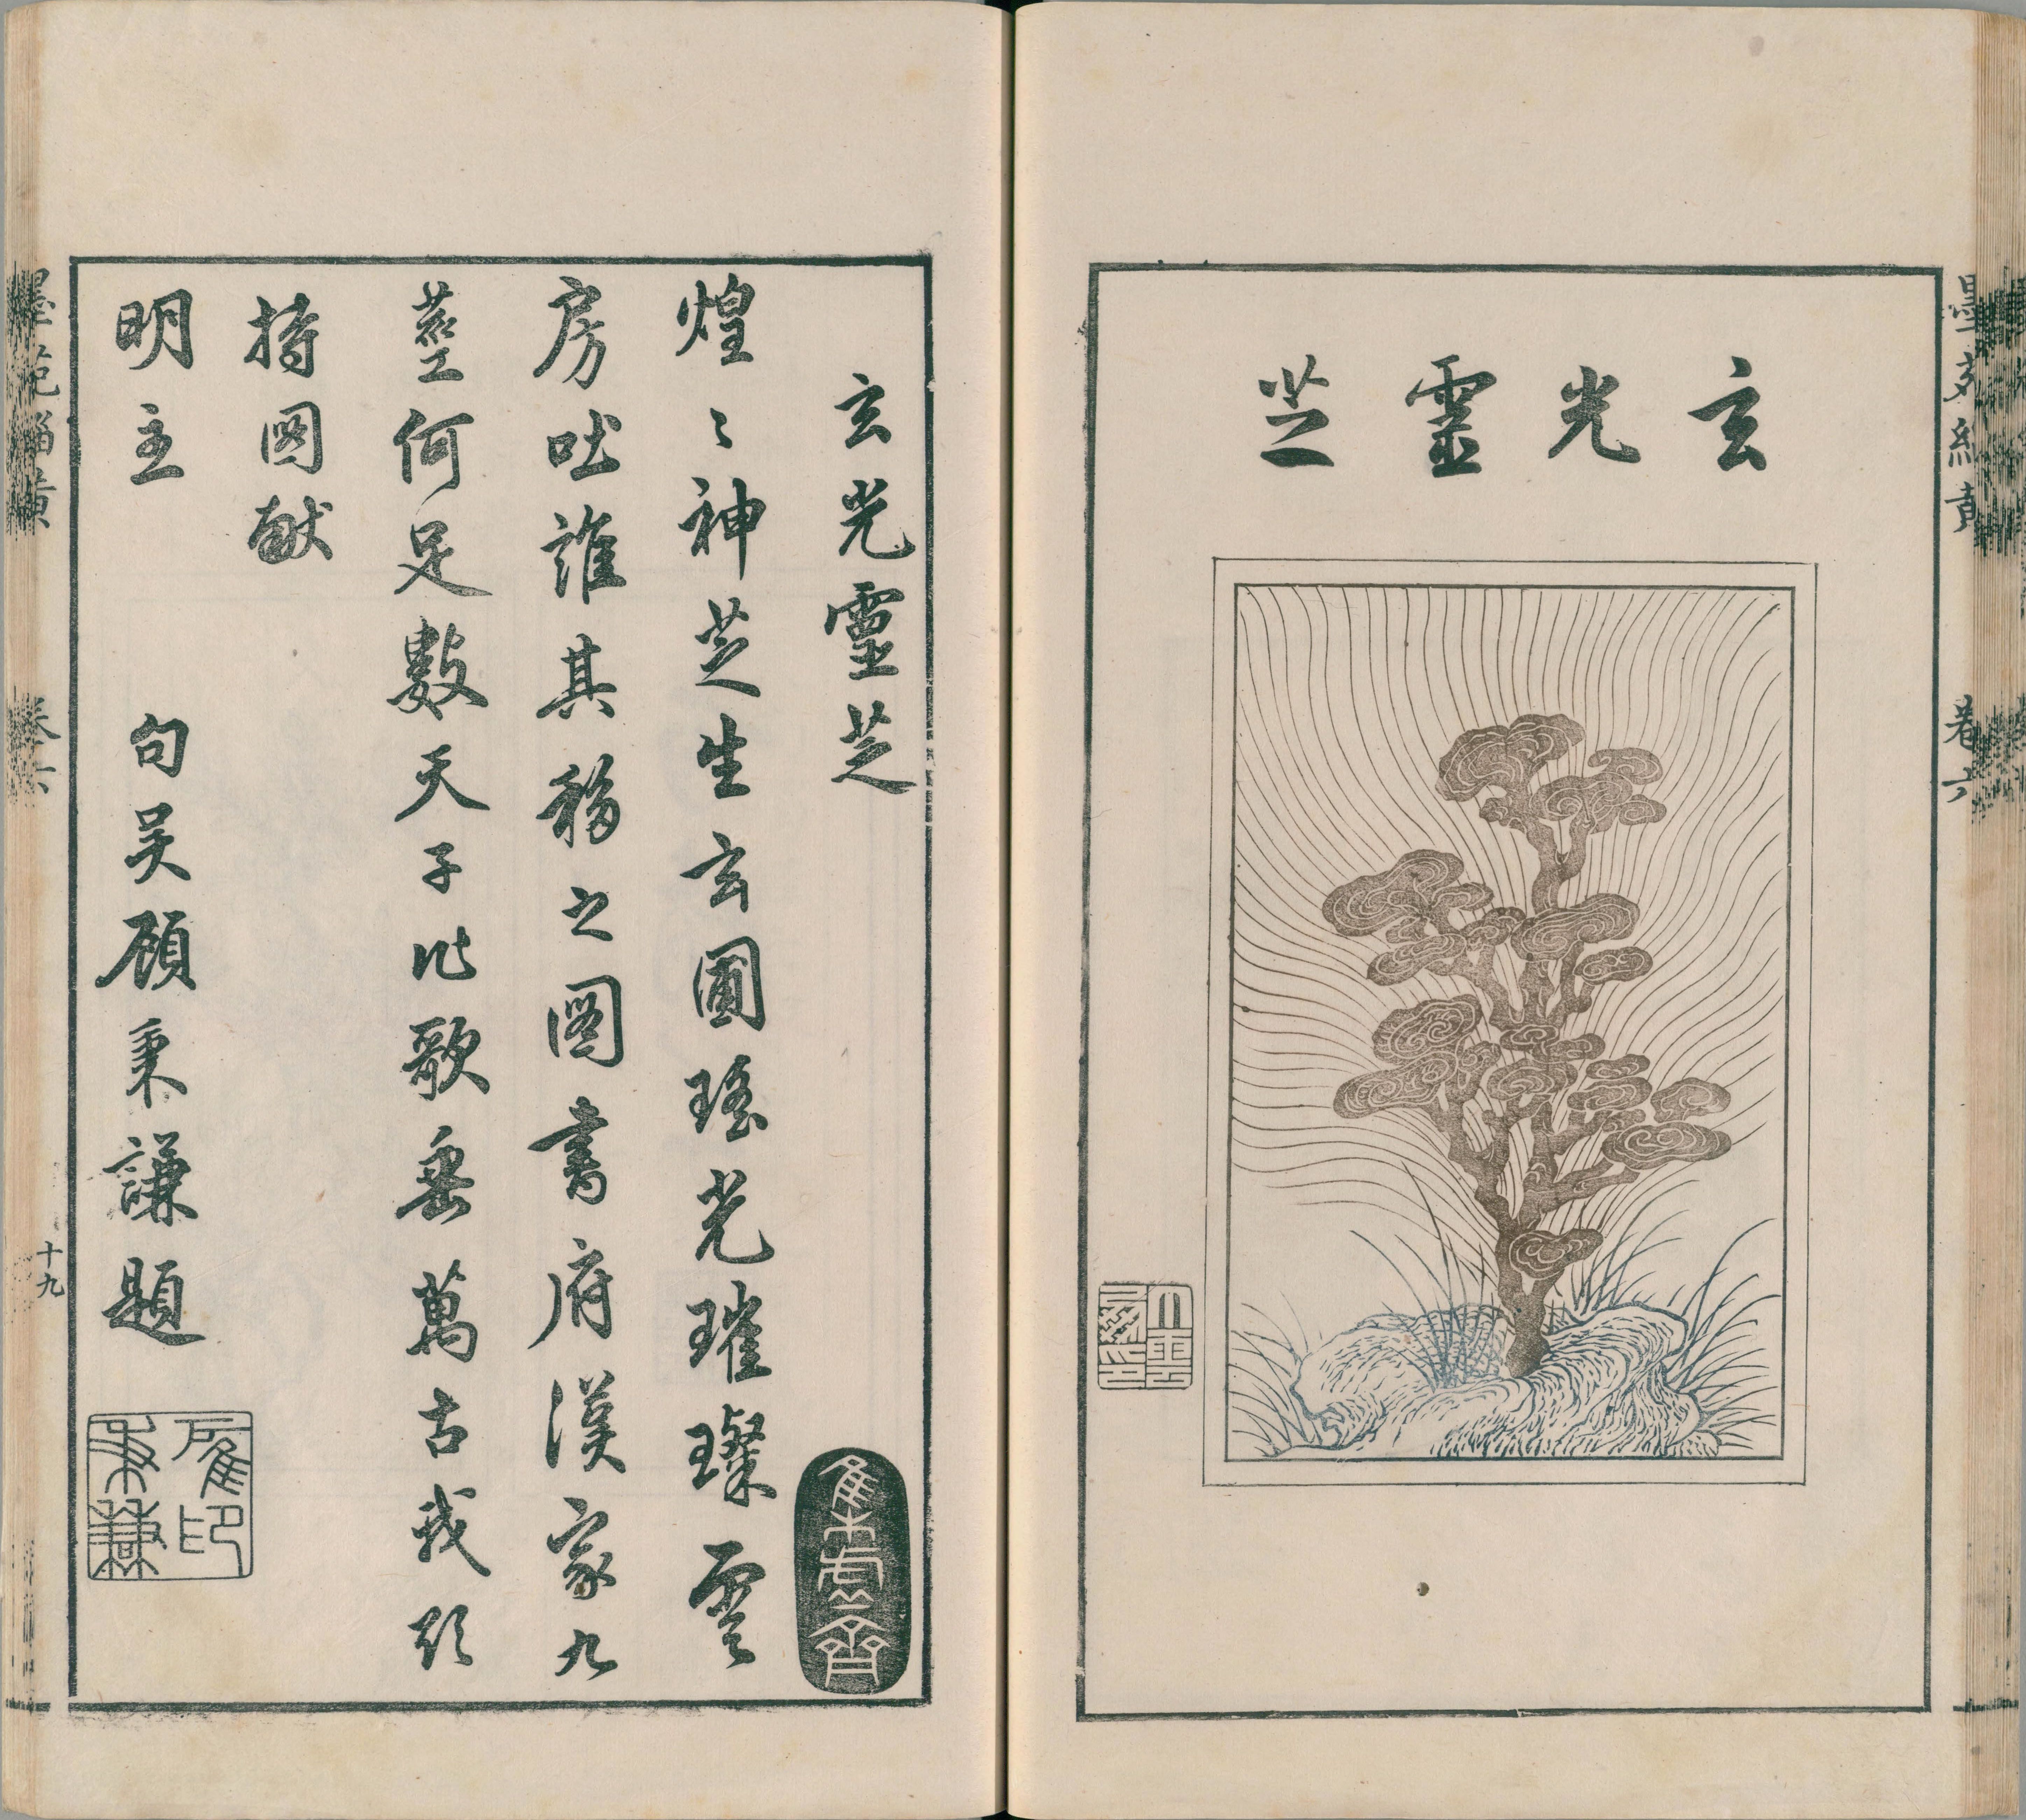 墨苑緇黃 卷六
玄光靈芝
玄光靈芝
煌〻神芝生玄圃瑤光璀璨雲
房吐誰其移之圖書府漢家九
莖何足數天子此歌垂萬古我欲
持圖獻
明主 句吳顧秉謙題
顧印秉謙
墨苑緇黃 卷六 十九